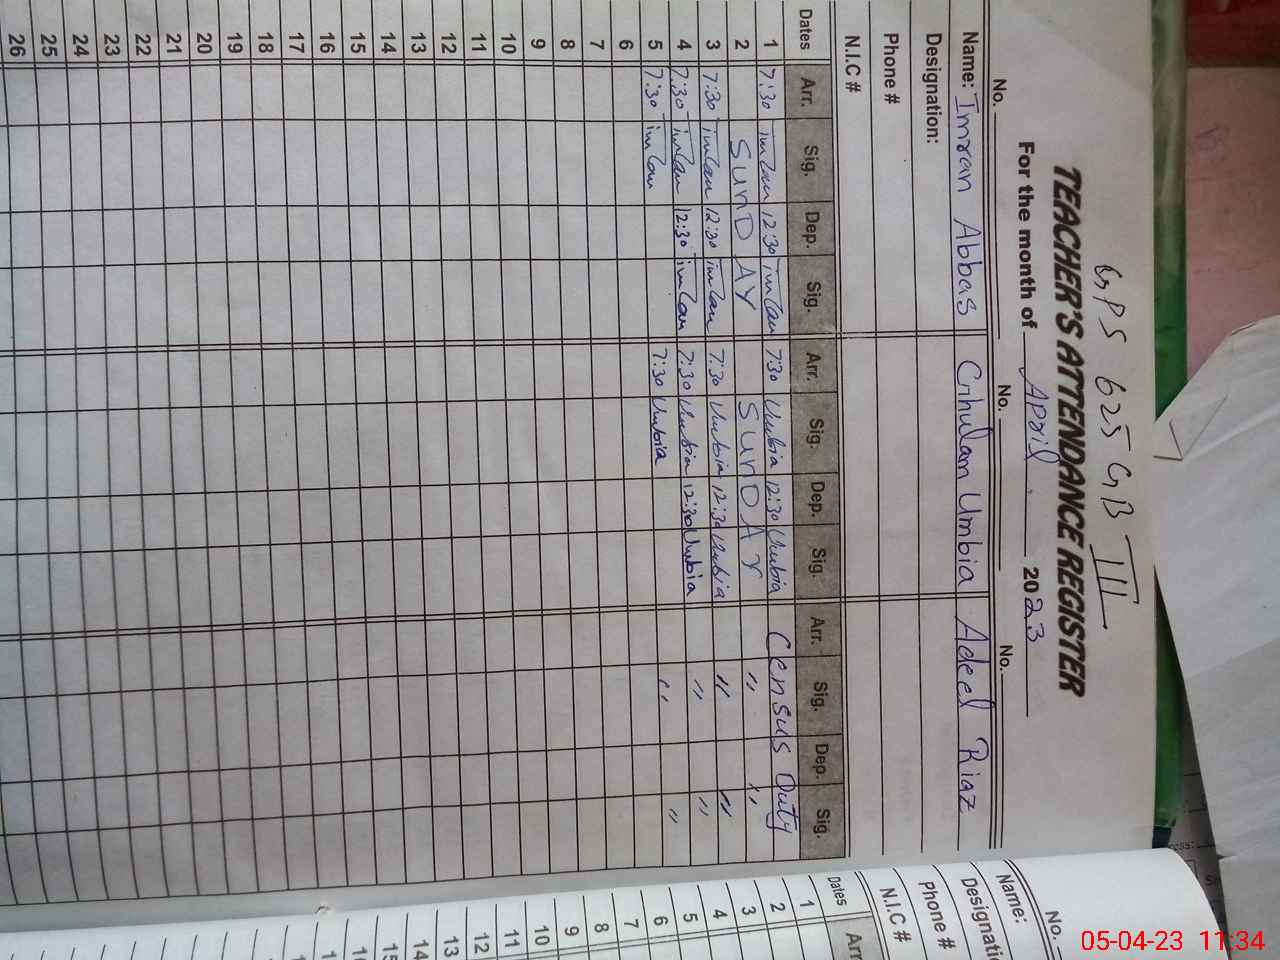 GPS 625 GB III
TEACHER'S ATTENDANCE REGISTER
For the month of April 2023
No. No. No.
Name: Imran Abbas Ghulam Umbia Adeel Riaz
Designation:
Phone #
N.I.C #
Dates Arr. Sig. Dep. Sig. Arr. Sig. Dep. Sig. Arr. Sig. Dep. Sig.
1 7:30 imran 12:30 imran 7:30 Umbia 12:30 Umbia Census Duty
2 SUNDAY SUNDAY " "
3 7:30 imran 12:30 imran 7:30 Umbia 12:30 Umbia " "
4 7:30 imran 12:30 imran 7:30 Umbia 12:30 Umbia " "
5 7:30 imran 7:30 Umbia " "
6
7
8
9
10
11
12
13
14
15
16
17
18
19
20
21
22
23
24
25
26
No.
Name:
Designati
Phone #
N.I.C #
Dates Arr
1
2
3
4
5
6
7
8
9
10
11
12
13
14
05-04-23 11:34